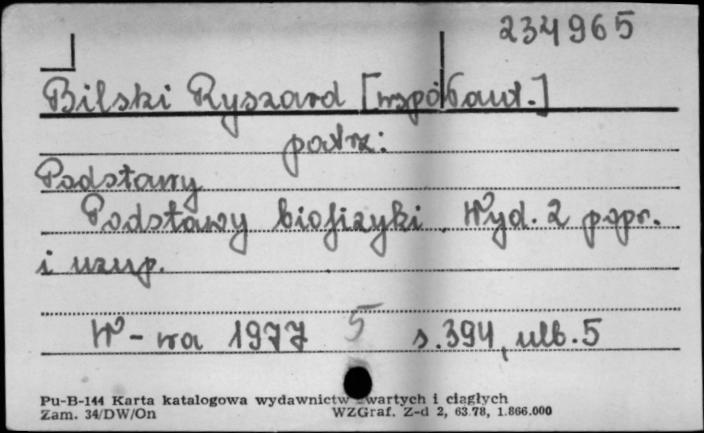 234965
Bilski Ryszard [współaut.]
patrz:
Podstawy
Podstawy biofizyki. Wyd. 2 popr.
i uzup.
W-wa 1977 5 s. 394, ulb. 5
Pu-B-144 Karta katalogowa wydawnictw zwartych i ciągłych
Zam. 34/DW/On WZGraf. Z-d 2, 63.78, 1.866.000